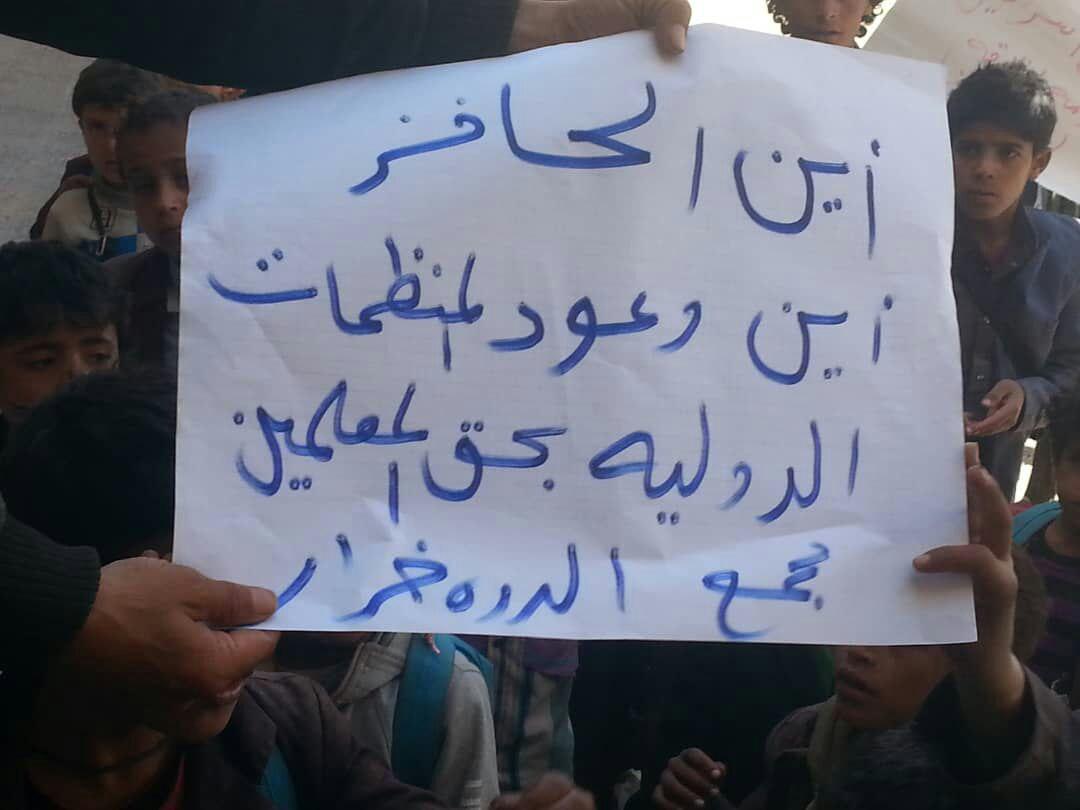 أين الحافز
أين وعود المنظمات
الدوليه بحق المعلمين
مجمع الدره خرار